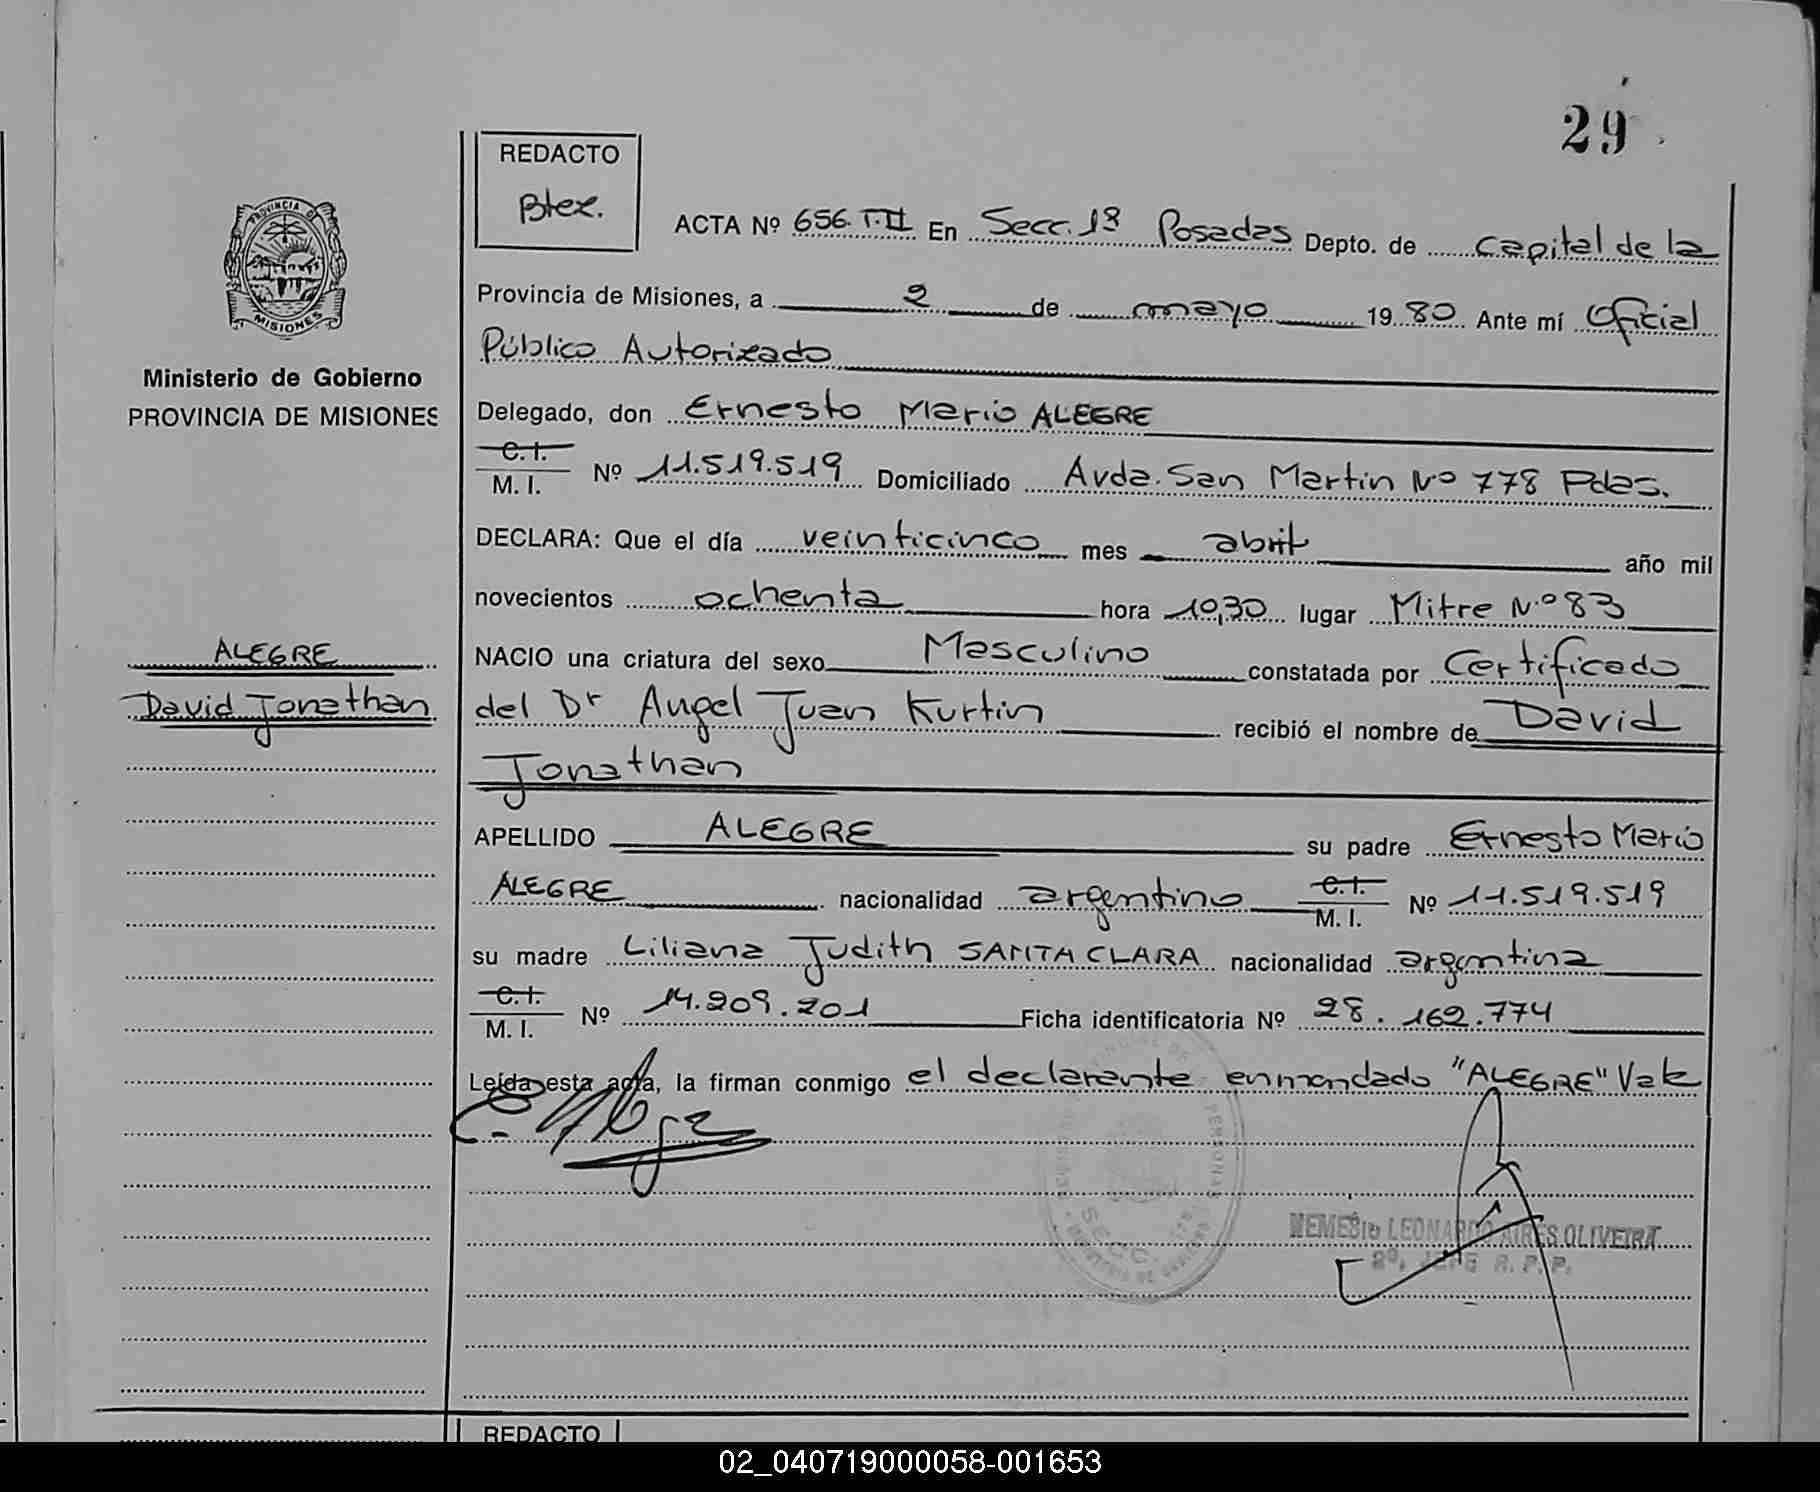 29
REDACTO
Btex.
ACTA Nº 656 T.II En Secc. 1ª Posadas Depto. de Capital de la
Provincia de Misiones, a 2 de mayo 1980 Ante mí Oficial
Público Autorizado
Delegado, don Ernesto Mario ALEGRE
C.I.
M. I. Nº 11.519.519 Domiciliado Avda. San Martin Nº 778 Pdas.
DECLARA: Que el día veinticinco mes abril año mil
novecientos ochenta hora 10,30 lugar Mitre Nº 83
NACIO una criatura del sexo Masculino constatada por Certificado
del Dr Angel Juan Kurtin recibió el nombre de David
Jonathan
APELLIDO ALEGRE su padre Ernesto Mario
ALEGRE nacionalidad argentino C.I. M. I. Nº 11.519.519
su madre Liliana Judith SANTA CLARA nacionalidad argentina
C.I.
M. I. Nº 14.209.201 Ficha identificatoria Nº 28.162.774
Leída esta acta, la firman conmigo el declarante enmendado "ALEGRE" Vale
PROVINCIA DE
MISIONES
Ministerio de Gobierno
PROVINCIA DE MISIONES
ALEGRE
David Jonathan
PERSONAS
SECC.
NEMESIO LEONARDO AIRES OLIVEIRA
2º. JEFE R. P. P.
REDACTO
02_040719000058-001653